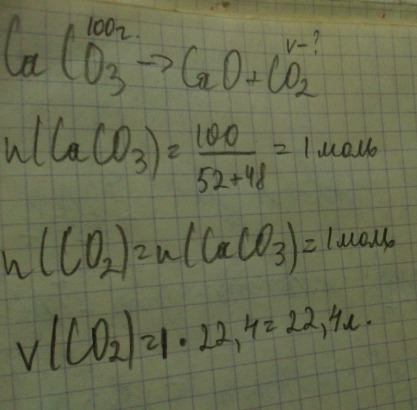 100г. V-?
CaCO₃ → CaO + CO₂
n(CaCO₃) = 100 / 52+48 = 1 моль
n(CO₂) = n(CaCO₃) = 1 моль
V(CO₂) = 1 · 22,4 = 22,4 л.